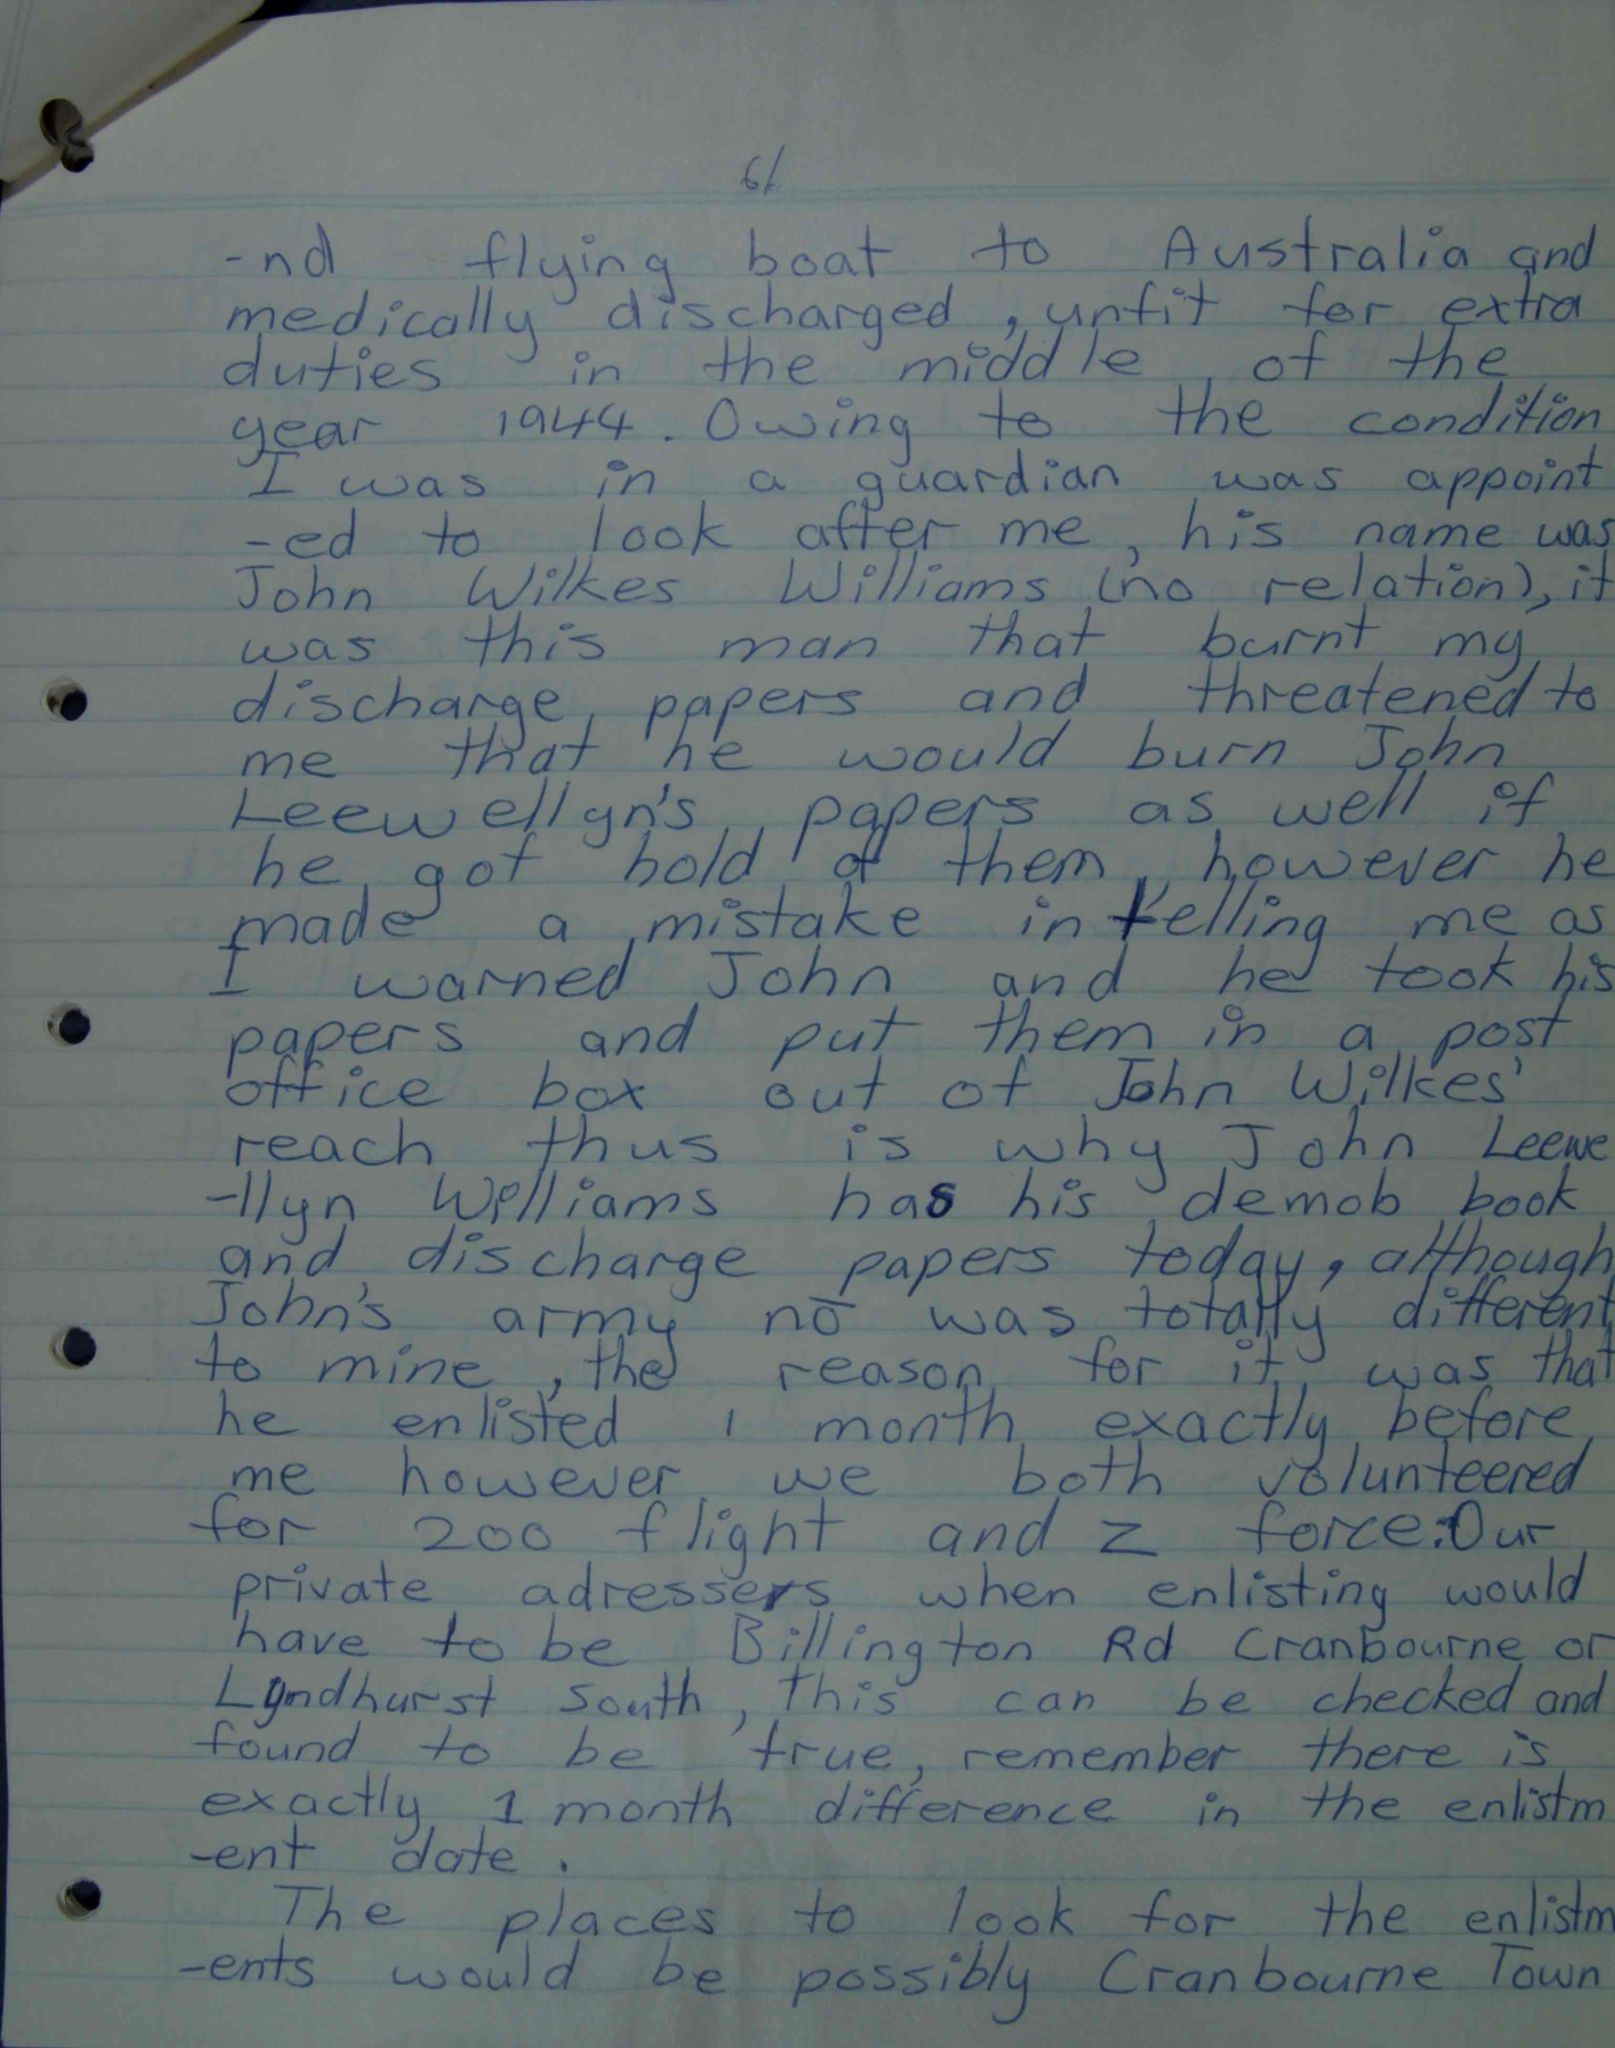 6/
-nd flying boat to Australia and
medically discharged, unfit for extra
duties in the middle of the
year 1944. Owing to the condition
I was in a guardian was appoint
-ed to look after me, his name was
John Wilkes Williams (no relation), it
was this man that burnt my
discharge papers and threatened to
me that he would burn John
Leewellyn's papers as well if
he got hold of them, however he
made a mistake in telling me as
I warned John and he took his
papers and put them in a post
office box out of John Wilkes'
reach thus is why John Leewe
-llyn Williams has his demob book
and discharge papers today, although
John's army no was totally different
to mine, the reason for it was that
he enlisted 1 month exactly before
me however we both volunteered
for 200 flight and Z force. Our
private adressers when enlisting would
have to be Billington Rd Cranbourne or
Lyndhurst South, this can be checked and
found to be true, remember there is
exactly 1 month difference in the enlistm
-ent date.
The places to look for the enlistm
-ents would be possibly Cranbourne Town